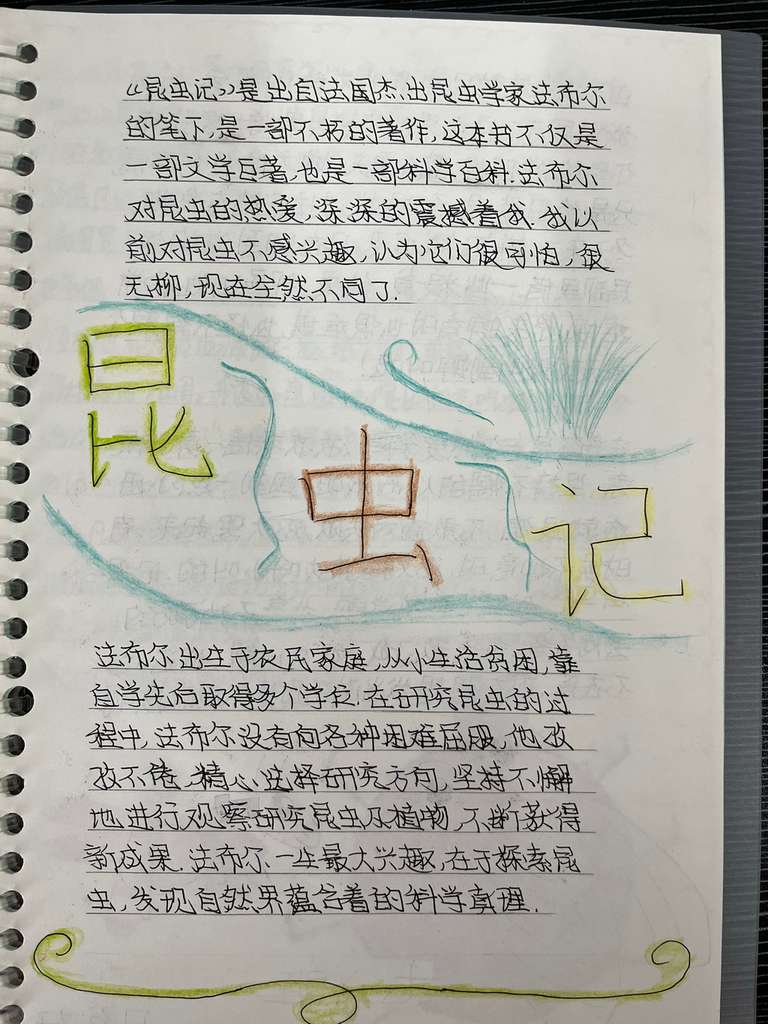 《昆虫记》是出自法国杰出昆虫学家法布尔
的笔下,是一部不朽的著作,这本书不仅是
一部文学巨著,也是一部科学百科.法布尔
对昆虫的热爱,深深的震撼着我.我以
前对昆虫不感兴趣,认为它们很可怕,很
无柳,现在全然不同了.
昆虫记
法布尔出生于农民家庭,从小生活贫困,靠
自学先后取得多个学位.在研究昆虫的过
程中,法布尔没有向各种困难屈服,他孜
孜不倦,精心选择研究方向,坚持不懈
地进行观察研究昆虫及植物,不断获得
新成果.法布尔一生最大兴趣,在于探索昆
虫,发现自然界蕴含着的科学真理.